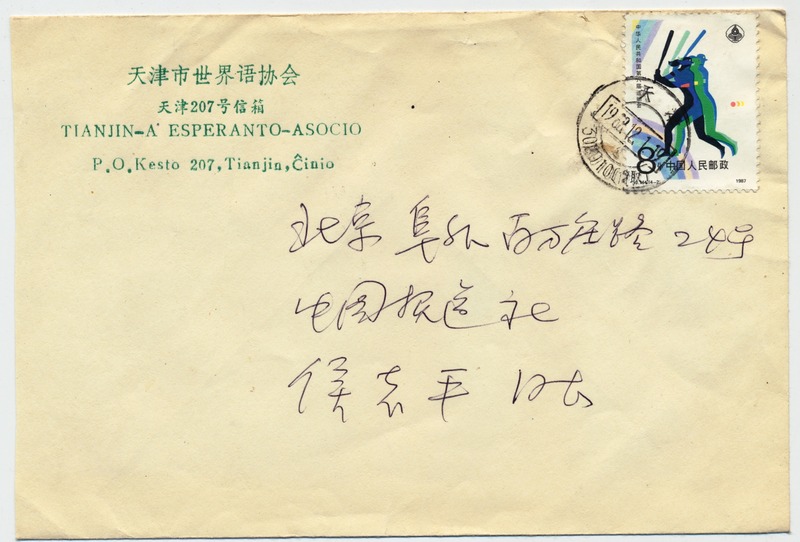 天津市世界语协会
天津207号信箱
TIANJIN-A' ESPERANTO-ASOCIO
P.O.Kesto 207,Tianjin,Ĉinio
中华人民共和国第六届
天
8
中国人民邮政
1987
北京 阜外 百万庄路 24号
中国报道社
侯志平 同志